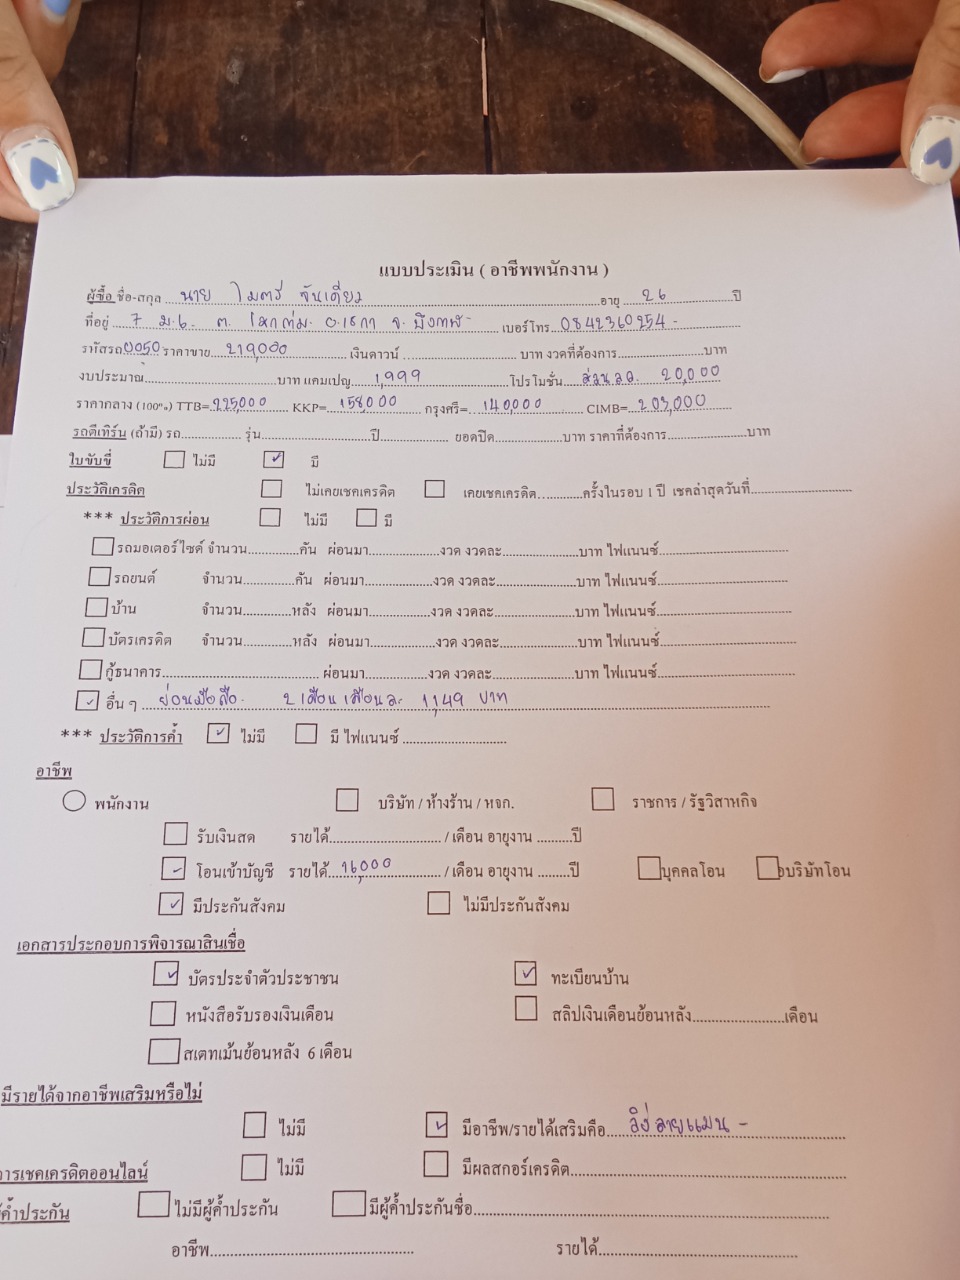 แบบประเมิน ( อาชีพพนักงาน )
ผู้ซื้อ ชื่อ-สกุล นาย ไมตรี จันเดียว อายุ 26 ปี
ที่อยู่ 7 ม.6. ต. โสกก่ม. อ.เซกา จ. บึงกาฬ- เบอร์โทร. 0842360254 -
รหัสรถ 0050 ราคาขาย 219,000 เงินดาวน์ บาท งวดที่ต้องการ บาท
งบประมาณ บาท แคมเปญ 1,999 โปรโมชั่น ส่วนลด 20,000
ราคากลาง (100%) TTB= 225,000 KKP= 158,000 กรุงศรี= 140,000 CIMB= 203,000
รถตีเทิร์น (ถ้ามี) รถ รุ่น ปี ยอดปิด บาท ราคาที่ต้องการ บาท
ใบขับขี่ ไม่มี มี
ประวัติเครดิต ไม่เคยเชคเครดิต เคยเชคเครดิต ครั้งในรอบ 1 ปี เชคล่าสุดวันที่
*** ประวัติการผ่อน ไม่มี มี
รถมอเตอร์ไซด์ จำนวน คัน ผ่อนมา งวด งวดละ บาท ไฟแนนซ์
รถยนต์ จำนวน คัน ผ่อนมา งวด งวดละ บาท ไฟแนนซ์
บ้าน จำนวน หลัง ผ่อนมา งวด งวดละ บาท ไฟแนนซ์
บัตรเครดิต จำนวน หลัง ผ่อนมา งวด งวดละ บาท ไฟแนนซ์
กู้ธนาคาร ผ่อนมา งวด งวดละ บาท ไฟแนนซ์
อื่น ๆ ผ่อนมือถือ. 2 เดือน เดือนละ 1,149 บาท
*** ประวัติการค้ำ ไม่มี มี ไฟแนนซ์
อาชีพ
พนักงาน บริษัท / ห้างร้าน / หจก. ราชการ / รัฐวิสาหกิจ
รับเงินสด รายได้ / เดือน อายุงาน ปี
โอนเข้าบัญชี รายได้ 16,000 / เดือน อายุงาน ปี บุคคลโอน บริษัทโอน
มีประกันสังคม ไม่มีประกันสังคม
เอกสารประกอบการพิจารณาสินเชื่อ
บัตรประจำตัวประชาชน ทะเบียนบ้าน
หนังสือรับรองเงินเดือน สลิปเงินเดือนย้อนหลัง เดือน
สเตทเม้นย้อนหลัง 6 เดือน
มีรายได้จากอาชีพเสริมหรือไม่
ไม่มี มีอาชีพ/รายได้เสริมคือ วิ่งลายแมน -
การเชคเครดิตออนไลน์ ไม่มี มีผลสกอร์เครดิต
ค้ำประกัน ไม่มีผู้ค้ำประกัน มีผู้ค้ำประกันชื่อ
อาชีพ รายได้